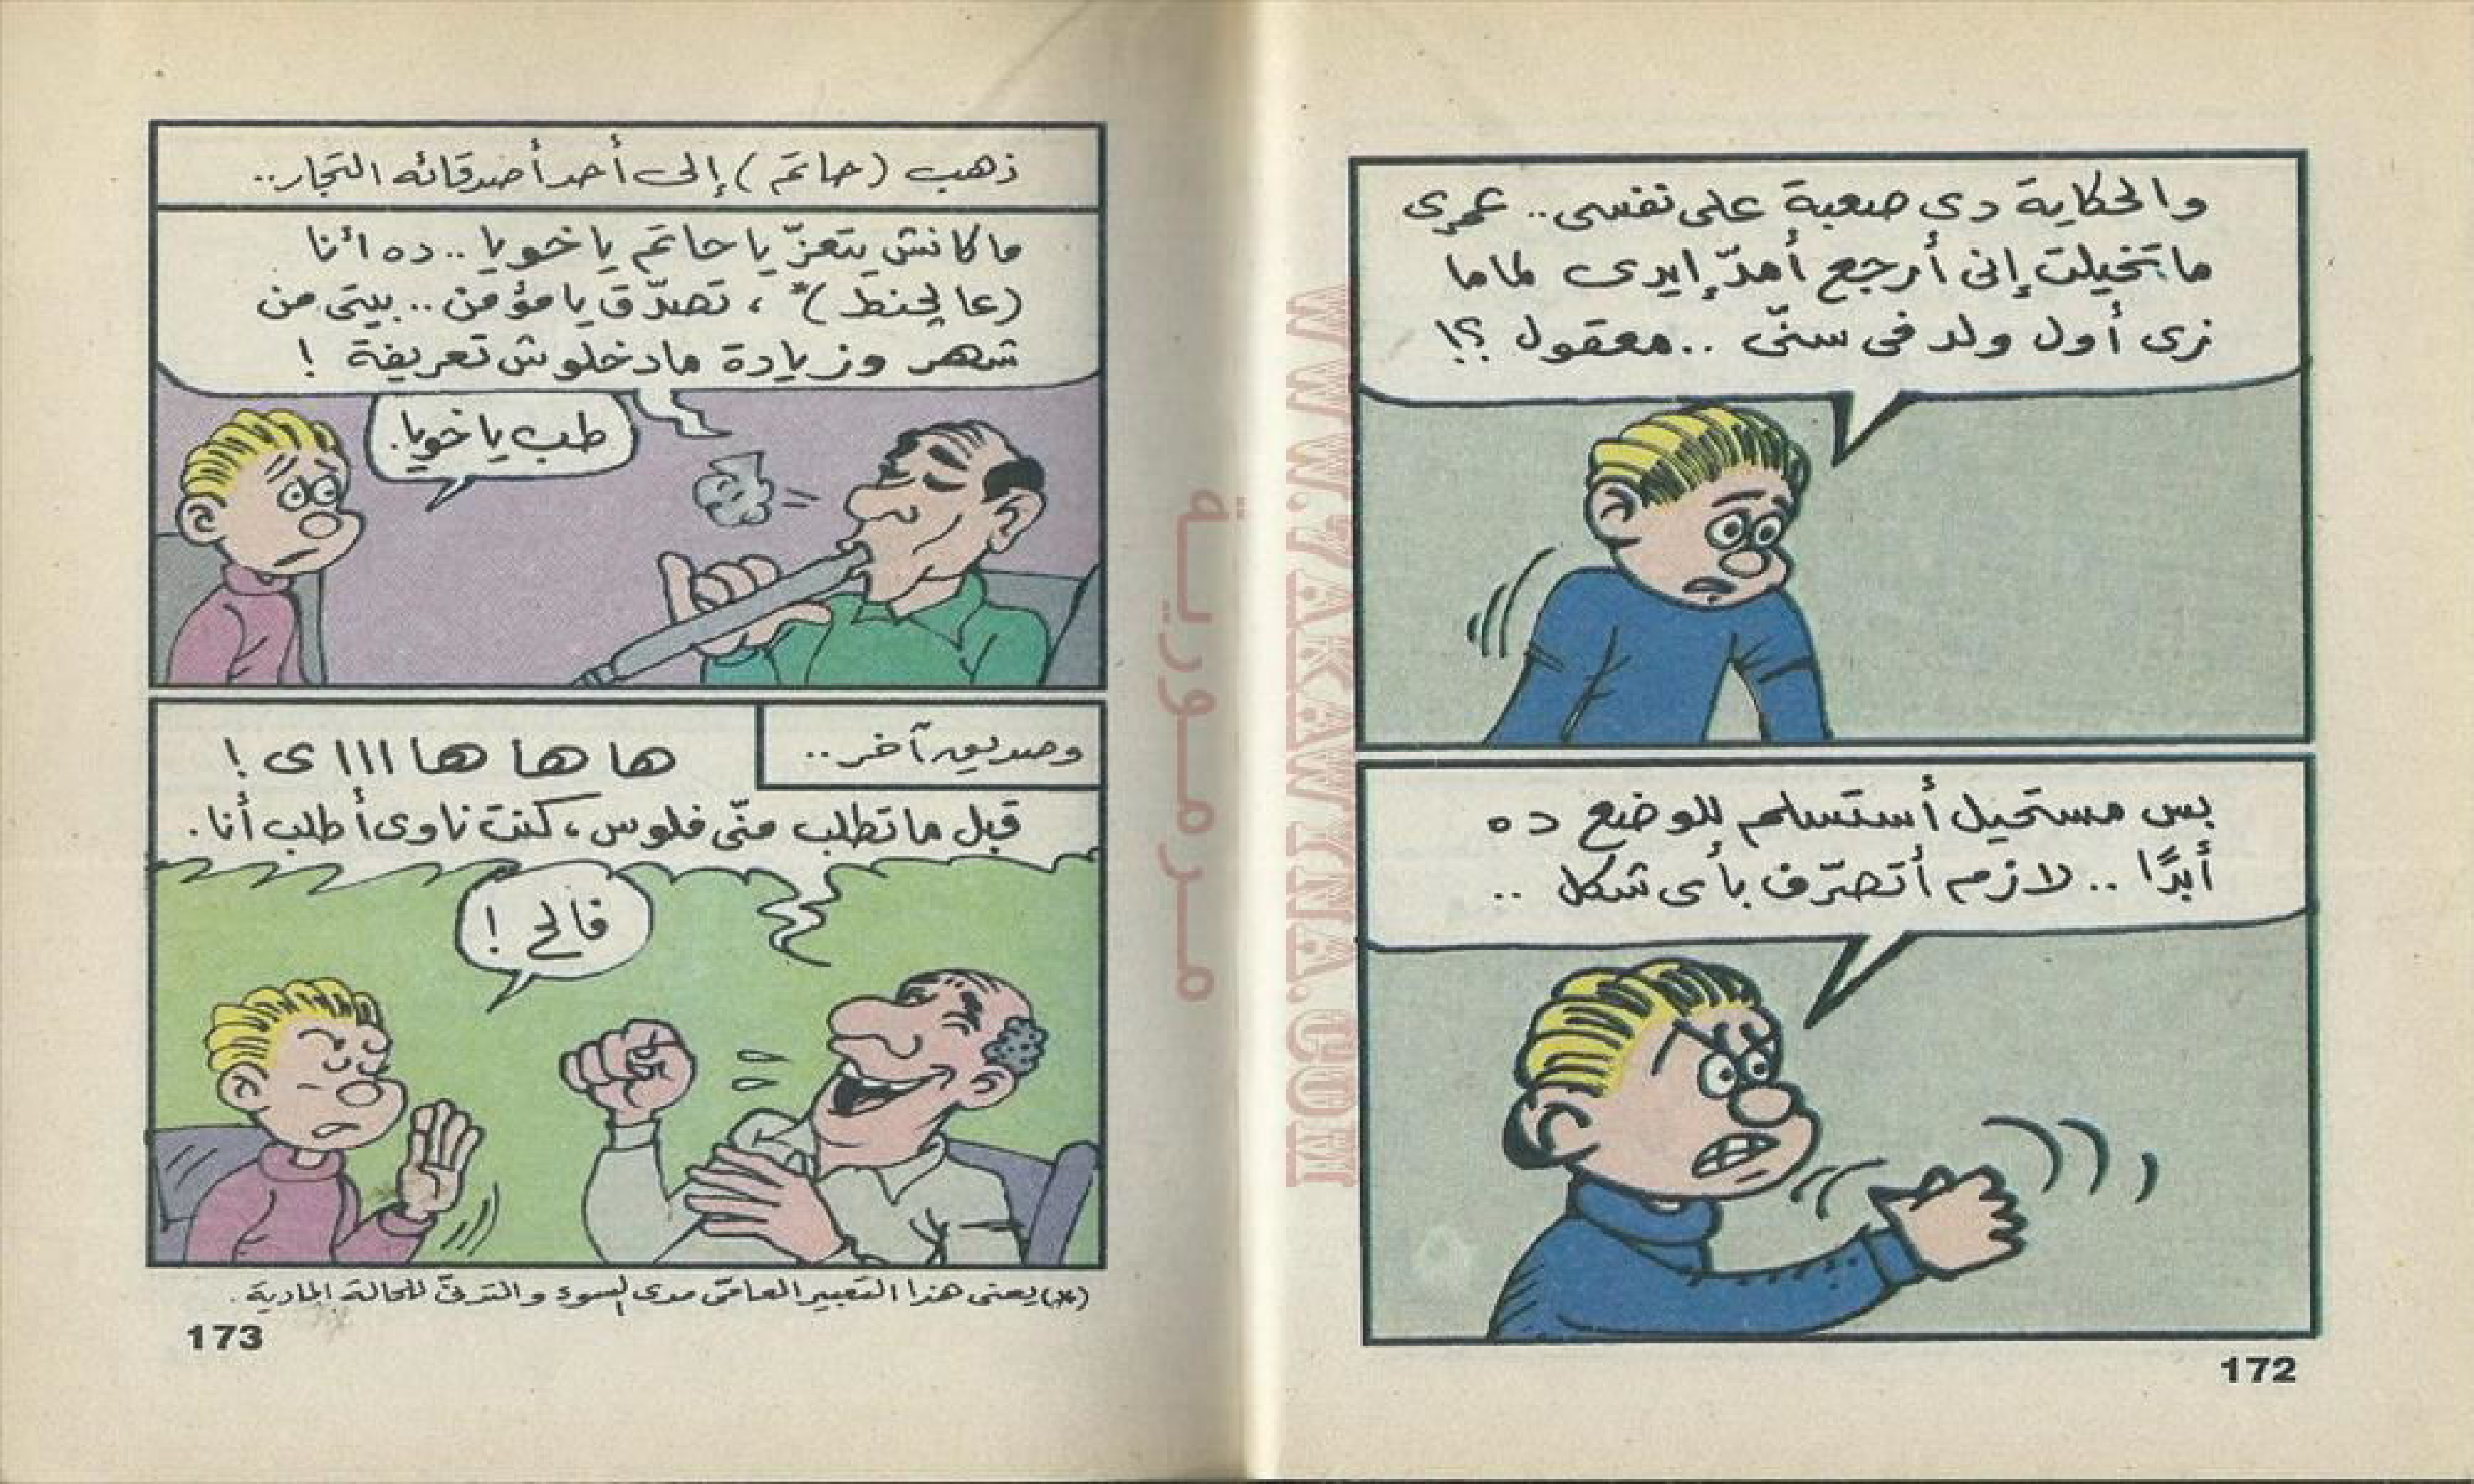 والحكاية دى صعبة على نفسى.. عمرى
ما تخيلت إنى أرجع أمدّ إيدى لماما
زى أول ولد فى سنّى .. معقول ؟!
بس مستحيل أستسلم للوضع ده
أبدًا .. لازم أتصرّف بأى شكل ..
172
ذهب (حاتم) إلى أحد أصدقائه التجار..
ما كانش يتعزّ يا حاتم يا خويا .. ده أنا
(عالحنط)*، تصدّق يا مؤمن .. بيتى من
شهر وزيادة مادخلوش تعريفة !
طب يا خويا.
وصديق آخر..
ها ها ها اااى !
قبل ما تطلب منّى فلوس، كنت ناوى أطلب أنا.
فالح !
(*) يعنى هذا التعبير العامى مدى السوء والتدنى للحالة المادية.
173
مرمورية
WWW.7AKAWINA.COM